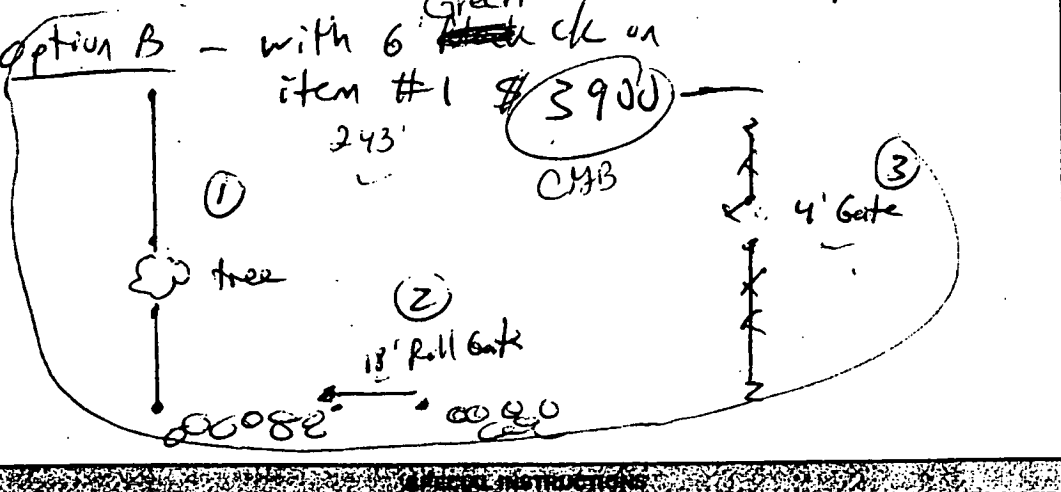 Green
Option B - with 6' ck on
item #1 $ 3900
243'
①
③
4' Gate
tree
②
18' Roll Gate
SPECIAL INSTRUCTIONS